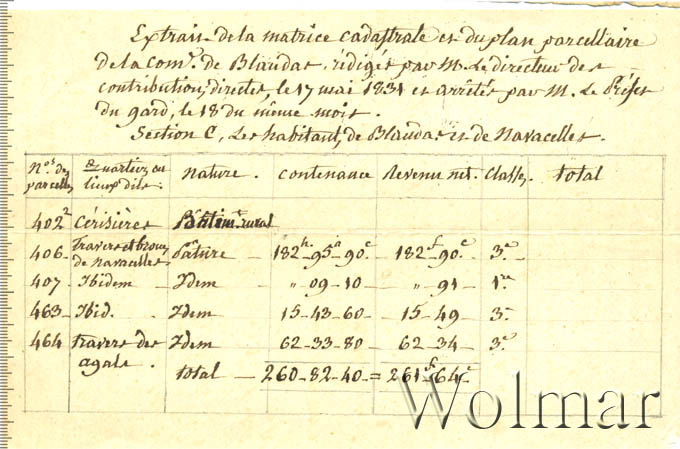 Extrait de la matrice cadastrale et du plan parcellaire
de la com.e de Blandas, rédigés par M. Le directeur des
contributions directes, le 17 mai 1831 et arrêtés par M. Le Préfet
du gard, le 18 du même mois.
Section C, Les habitants de Blandas et de Navacelles.
N.os de parcelles quartiers ou lieux dits. nature. contenance Revenu net. Classes. total
402² Cérisières Bâtim.t rural
406 Travers et broues de navacelles pâture 182h 95a 90c 182f 90c 3e
407 Ibidem Idem " 09 10 " 91 1re
463 Ibid. Idem 15 43 60 15 49 3
464 travers des agals. Idem 62 33 80 62 34 3e
total 260 82 40 = 261f 64c
Wolmar